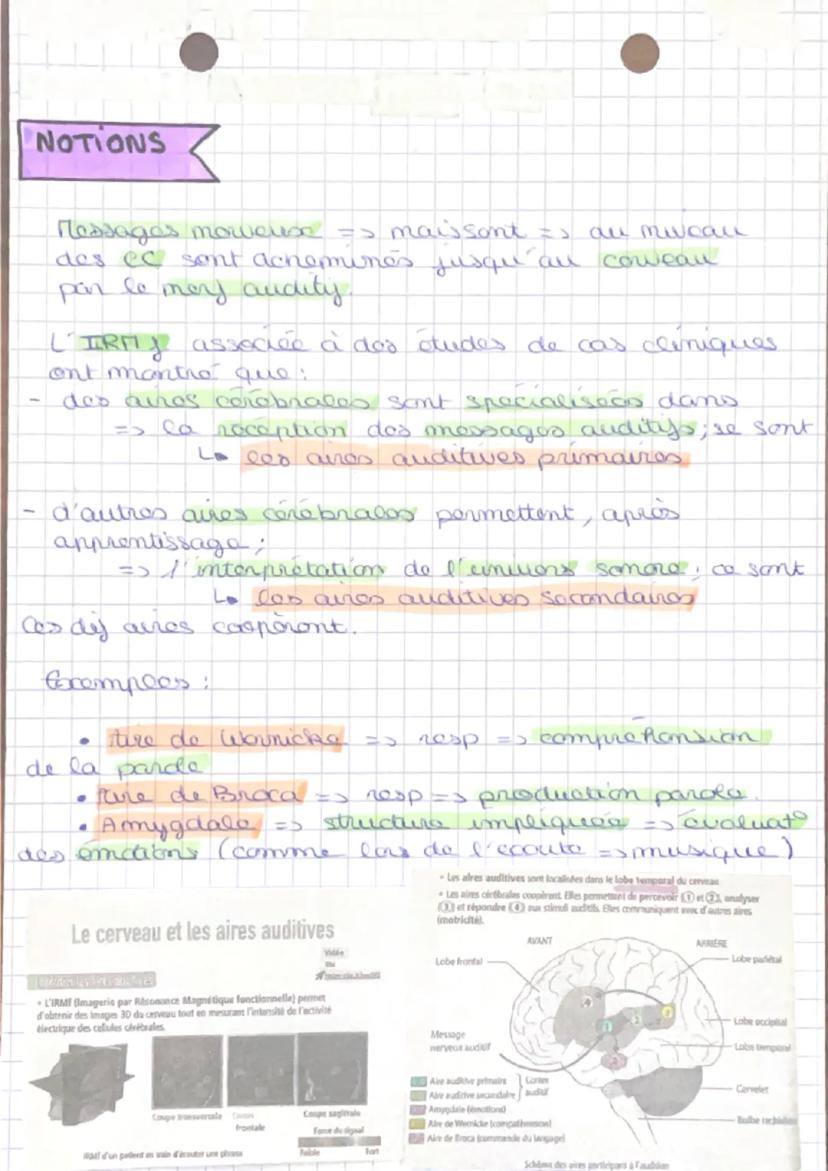 NOTIONS
Messages nerveux => naissant => au niveau
des CC sont acheminés jusqu'au cerveau
par le nerf auditif.
L'IRM f associée à des études de cas cliniques
ont montré que :
- des aires cérébrales sont spécialisées dans
=> la réception des messages auditifs ; se sont
↳ les aires auditives primaires
- d'autres aires cérébrales permettent, après
apprentissage ;
=> l'interprétation de l'univers sonore ; ce sont
↳ les aires auditives secondaires
Ces dif aires coopèrent.
Exemples :
• Aire de Wernicke => resp => compréhension
de la parole
• Aire de Broca => resp => production parole.
• Amygdale => structure impliquée => évaluat°
des émotions (comme lors de l'écoute => musique)
• Les aires auditives sont localisées dans le lobe temporal du cerveau
• Les aires cérébrales coopèrent. Elles permettent de percevoir (① et ②), analyser
(③) et répondre (④) aux stimuli auditifs. Elles communiquent avec d'autres aires
(motricité).
Le cerveau et les aires auditives
Vidéo
• L'IRMf (Imagerie par Résonance Magnétique fonctionnelle) permet
d'obtenir des images 3D du cerveau tout en mesurant l'intensité de l'activité
électrique des cellules cérébrales.
Coupe transversale
Coupe frontale
Coupe sagittale
Force du signal
Faible Fort
IRMf d'un patient en train d'écouter une phrase
AVANT ARRIÈRE
Lobe frontal
Lobe pariétal
Lobe occipital
Lobe temporal
Message
nerveux auditif
Cervelet
Bulbe rachidien
4
1
2
3
Aire auditive primaire
Aire auditive secondaire
Cortex
auditif
Amygdale (émotions)
Aire de Wernicke (compréhension)
Aire de Broca (commande du langage)
Schéma des aires participant à l'audition